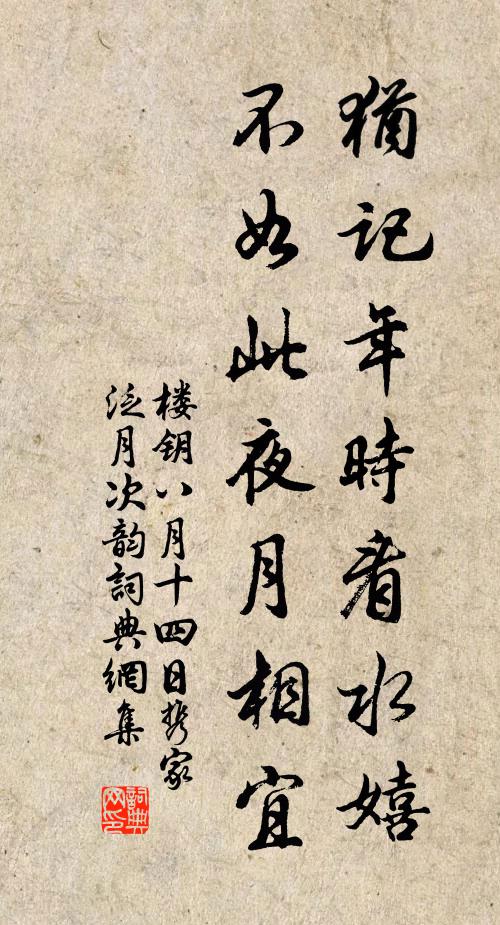 猶記年時看水嬉
不如此夜月相宜
楼钥八月十四日携家
泛月次韵詞典網集
詞典网印